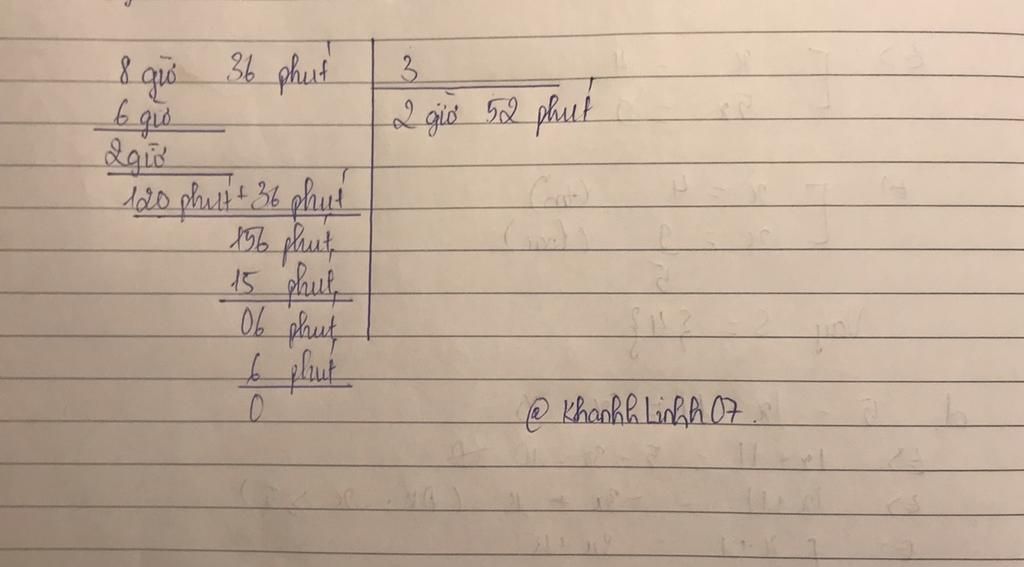 8 giờ 36 phút 3
6 giờ 2 giờ 52 phút
2 giờ
120 phút + 36 phút
156 phút
15 phút
06 phút
6 phút
0
@ KhanhhLinhh07.